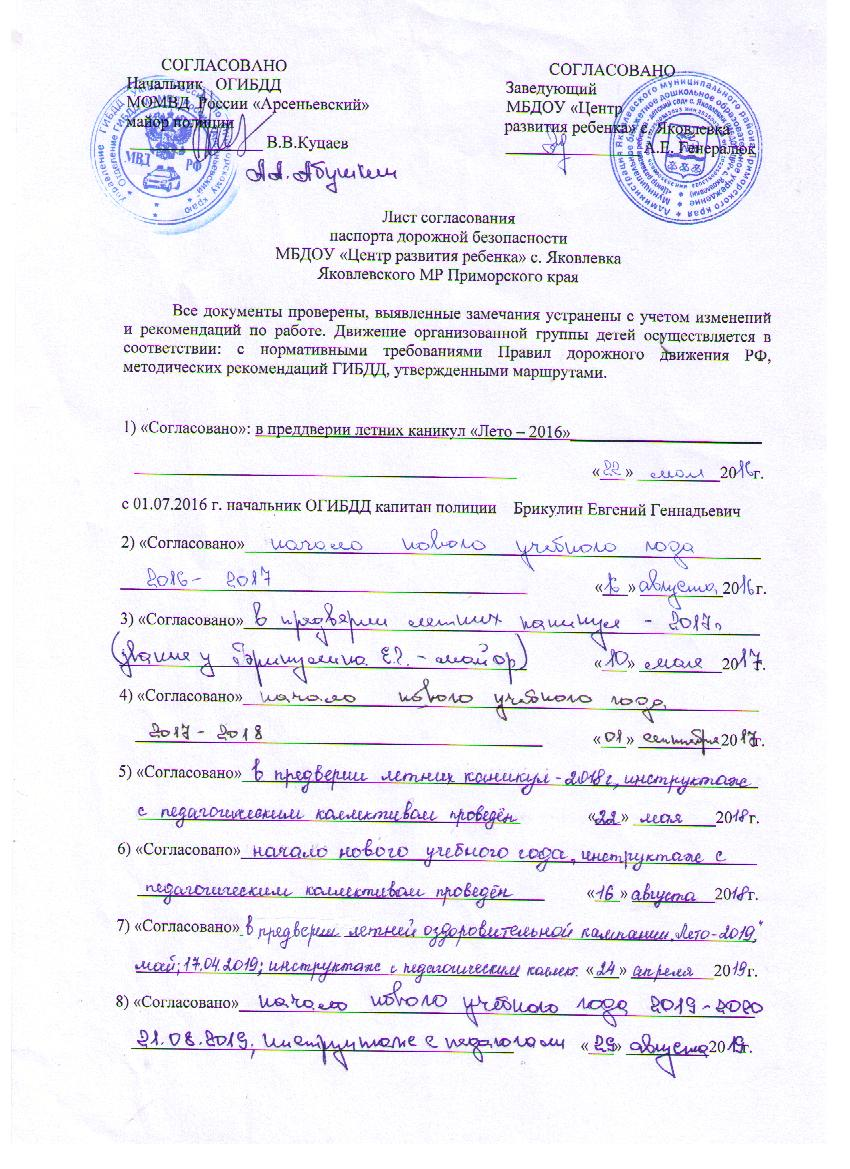 СОГЛАСОВАНО
Начальник ОГИБДД
МОМВД России «Арсеньевский»
майор полиции
В.В.Куцаев
СОГЛАСОВАНО
Заведующий
МБДОУ «Центр
развития ребенка» с. Яковлевка
А.Г. Генералюк
МВД РФ
Лист согласования
паспорта дорожной безопасности
МБДОУ «Центр развития ребенка» с. Яковлевка
Яковлевского МР Приморского края
Все документы проверены, выявленные замечания устранены с учетом изменений
и рекомендаций по работе. Движение организованной группы детей осуществляется в
соответствии: с нормативными требованиями Правил дорожного движения РФ,
методических рекомендаций ГИБДД, утвержденными маршрутами.
1) «Согласовано»: в преддверии летних каникул «Лето – 2016»
«22» мая 2016г.
с 01.07.2016 г. начальник ОГИБДД капитан полиции Брикулин Евгений Геннадьевич
2) «Согласовано» начало нового учебного года
2016 - 2017 « » августа 2016г.
3) «Согласовано» в предверии летних каникул - 2017г.
(звание у Брикулина Е.Г. - майор) «10» мая 2017.
4) «Согласовано» начало нового учебного года
2017 - 2018 «01» сентября 2017г.
5) «Согласовано» в предверии летних каникул - 2018г, инструктаж
с педагогическим коллективом проведён «22» мая 2018г.
6) «Согласовано» начало нового учебного года, инструктаж с
педагогическим коллективом проведён «16» августа 2018г.
7) «Согласовано» в предверии летней оздоровительной кампании „Лето-2019,"
май; 17.04.2019; инструктаж с педагогическим коллект. «24» апреля 2019г.
8) «Согласовано» начало нового учебного года 2019-2020
21.08.2019, инструктаж с педагогами «29» августа 2019г.